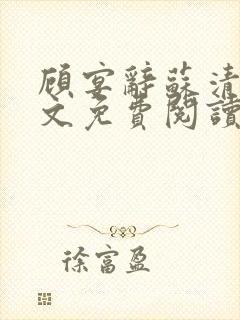 顾宴辭蘇清
文免費閱讀
徐富盈